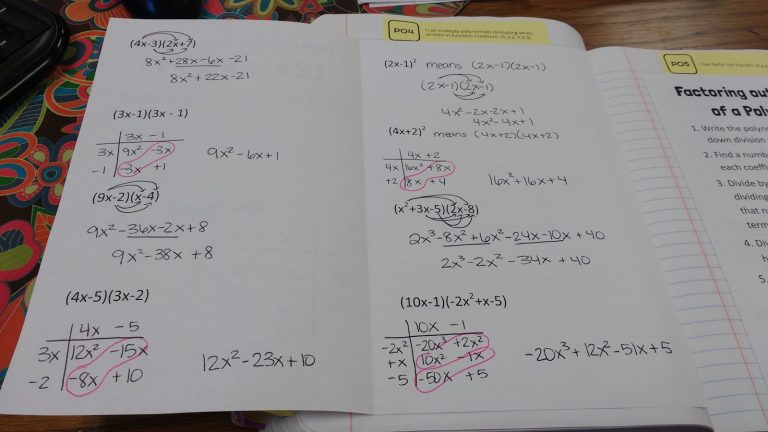 (4x-3)(2x+7)
8x²+28x-6x-21
8x²+22x-21
(3x-1)(3x - 1)
3x -1
3x 9x² -3x
-1 -3x +1
9x²-6x+1
(9x-2)(x-4)
9x²-36x-2x+8
9x²-38x+8
(4x-5)(3x-2)
4x -5
3x 12x² -15x
-2 -8x +10
12x²-23x+10
PO4
I can multiply polynomials (including when
written in function notation).
(2x-1)² means (2x-1)(2x-1)
(2x-1)(2x-1)
4x²-2x-2x+1
4x²-4x+1
(4x+2)² means (4x+2)(4x+2)
4x +2
4x 16x² +8x
+2 8x +4
16x²+16x+4
(x²+3x-5)(2x-8)
2x³-8x²+6x²-24x-10x+40
2x³-2x²-34x+40
(10x-1)(-2x²+x-5)
10x -1
-2x² -20x³ +2x²
+x 10x² -1x
-5 -50x +5
-20x³+12x²-51x+5
PO5
I can factor out the GCF of a
Factoring out
of a Poly
1. Write the polyno
down division
2. Find a numb
each coeffi
3. Divide by
dividing
that n
term
4. Div
h
5.